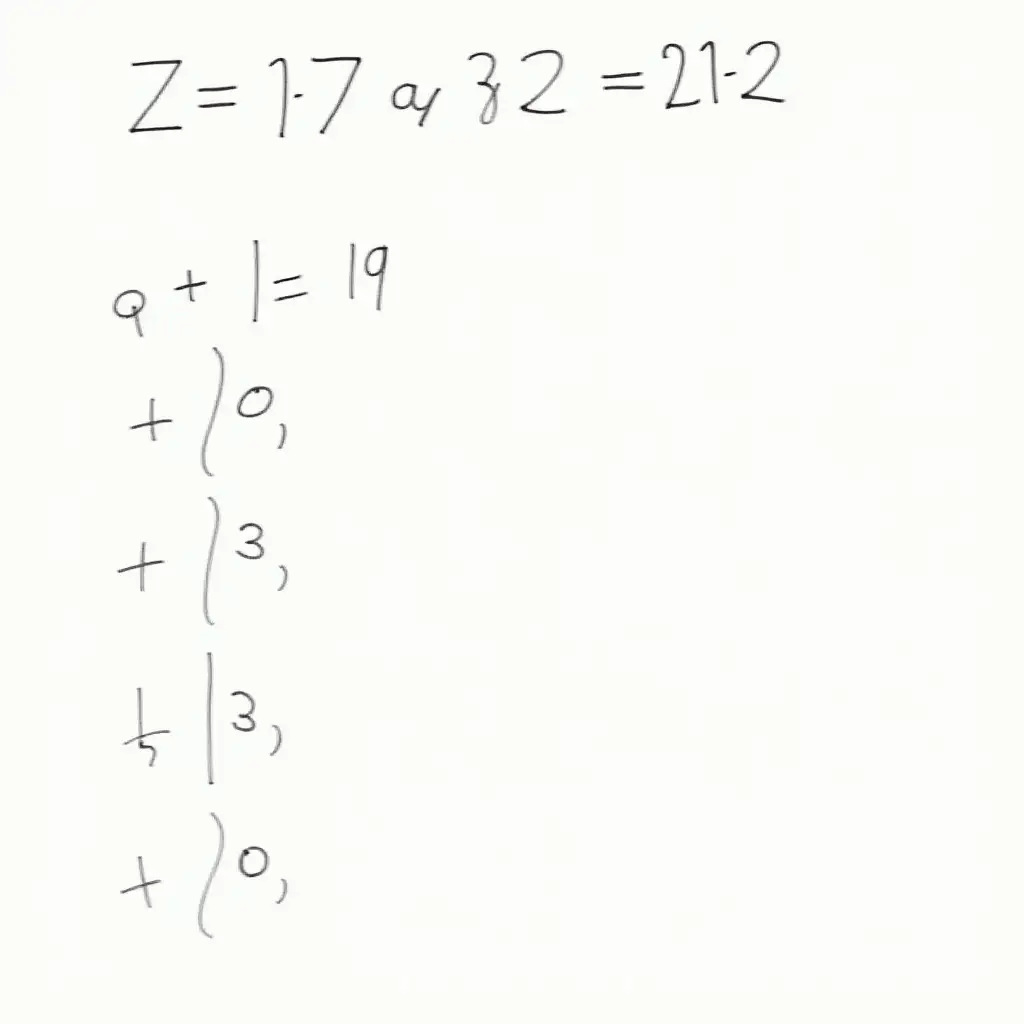 Z = 1.7 a, 3 2 = 21.2
9 + | = 19
+ ) 0,
+ ) 3,
+ | 3,
+ ) 0,